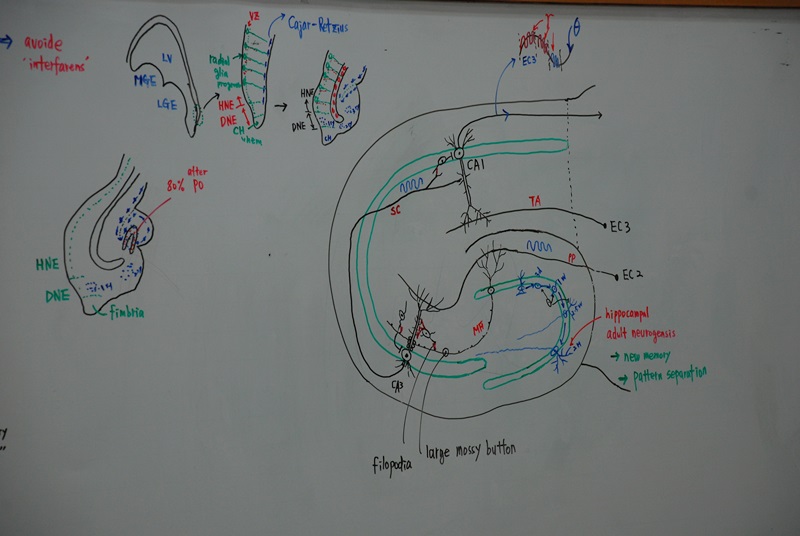 avoide
"interfarens"
LV
MGE
LGE
VZ
radial
glia
progeni
HNE
DNE
CH
Cajar-Retzius
HNE
DNE
CH
EC3
θ
80% after
P0
HNE
DNE
fimbria
CA1
SC
TA
EC3
PP
EC2
MF
CA3
filopodia
large mossy button
hippocampal
adult neurogensis
→ new memory
→ pattern separation